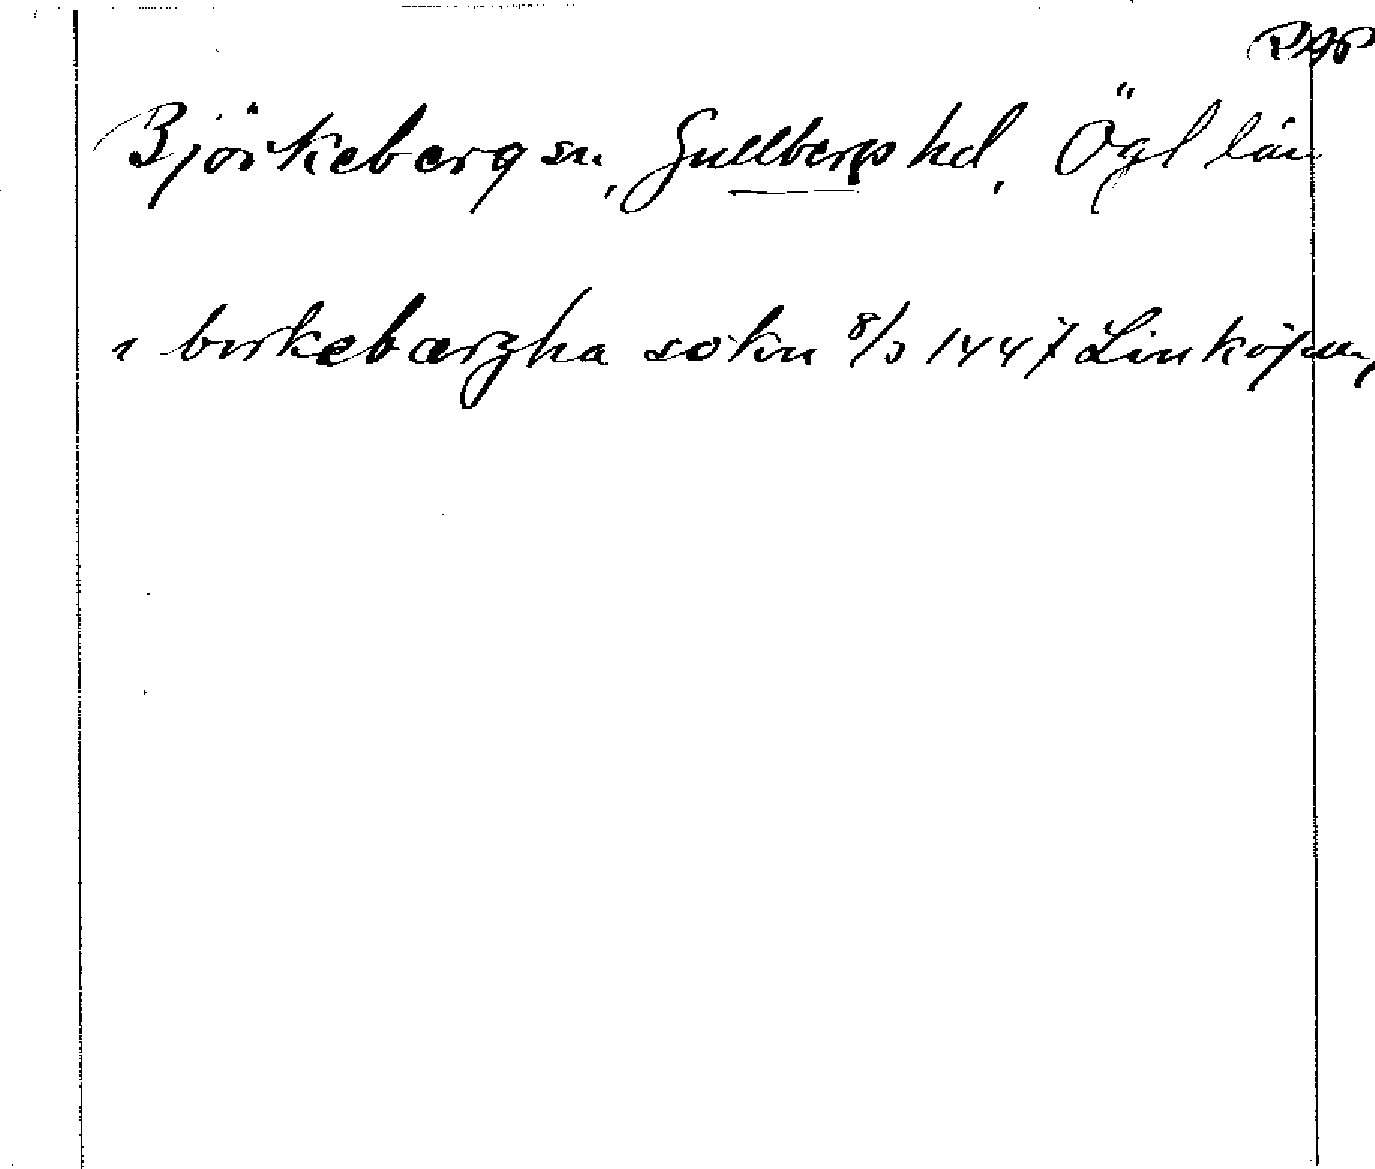 Rap
Björkeberg sn, Gullbergs hd, Ögl län
i birkebærgha sokn 8/3 1447 Linköping